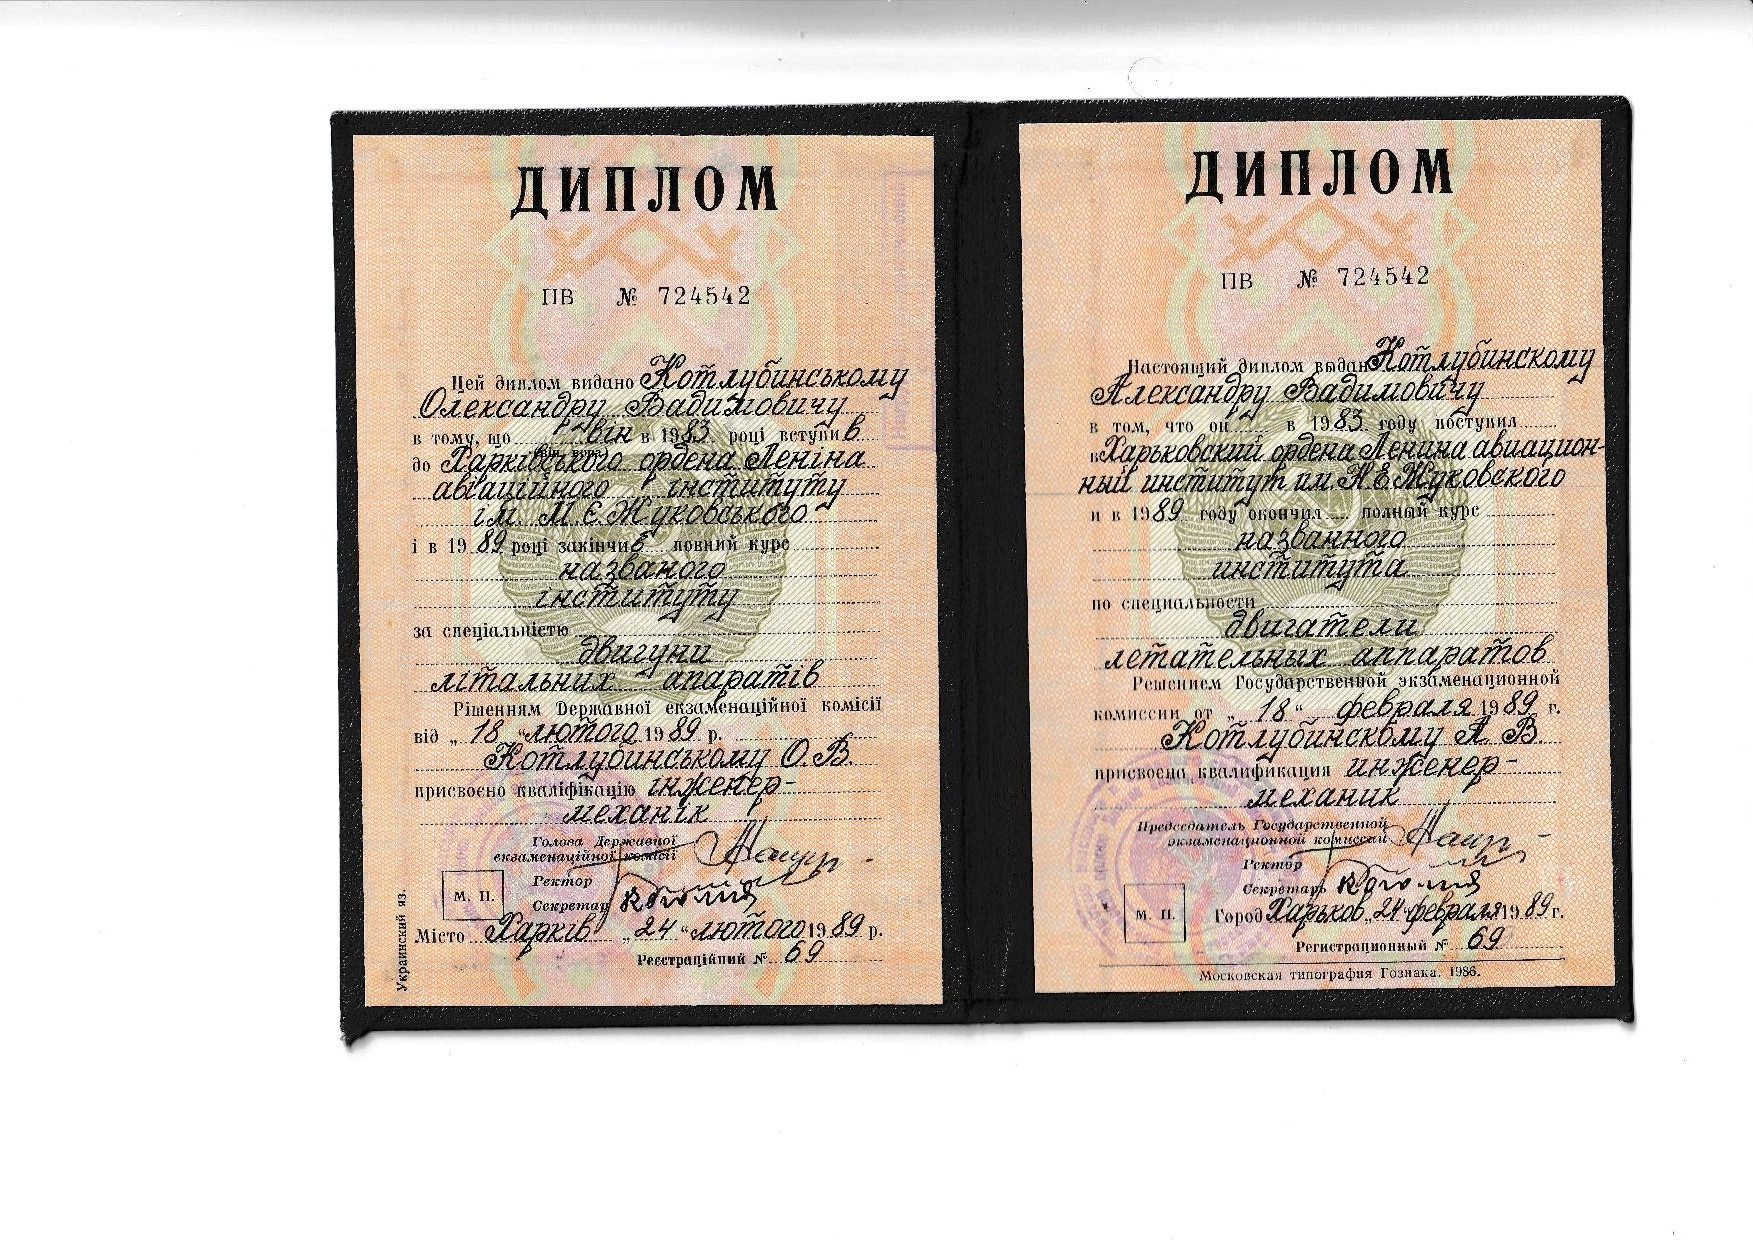 ДИПЛОМ
ПВ № 724542
Цей диплом видано Котлубинському
Олександру Вадимовичу
в тому, що він в 1983 році вступив
до Харківського ордена Леніна
авіаційного інституту
ім. М.Є.Жуковського
і в 1989 році закінчив повний курс
названого
інституту
за спеціальністю
двигуни
літальних апаратів
Рішенням Державної екзаменаційної комісії
від „18“ лютого 1989 р.
Котлубинському О.В.
присвоєно кваліфікацію інженер-
механік
Голова Державної
екзаменаційної комісії
Ректор
М. П.
Секретар
Місто Харків „24“ лютого 1989 р.
Реєстраційний № 69
Украинский яз.
ДИПЛОМ
ПВ № 724542
Настоящий диплом выдан Котлубинскому
Александру Вадимовичу
в том, что он в 1983 году поступил
в Харьковский ордена Ленина авиацион-
ный институт им. Н.Е.Жуковского
и в 1989 году окончил полный курс
названного
института
по специальности
двигатели
летательных аппаратов
Решением Государственной экзаменационной
комиссии от „18“ февраля 1989 г.
Котлубинскому А. В.
присвоена квалификация инженер-
механик
Председатель Государственной
экзаменационной комиссии
Ректор
Секретарь
М. П.
Город Харьков „24“ февраля 1989 г.
Регистрационный № 69
Московская типография Гознака. 1986.